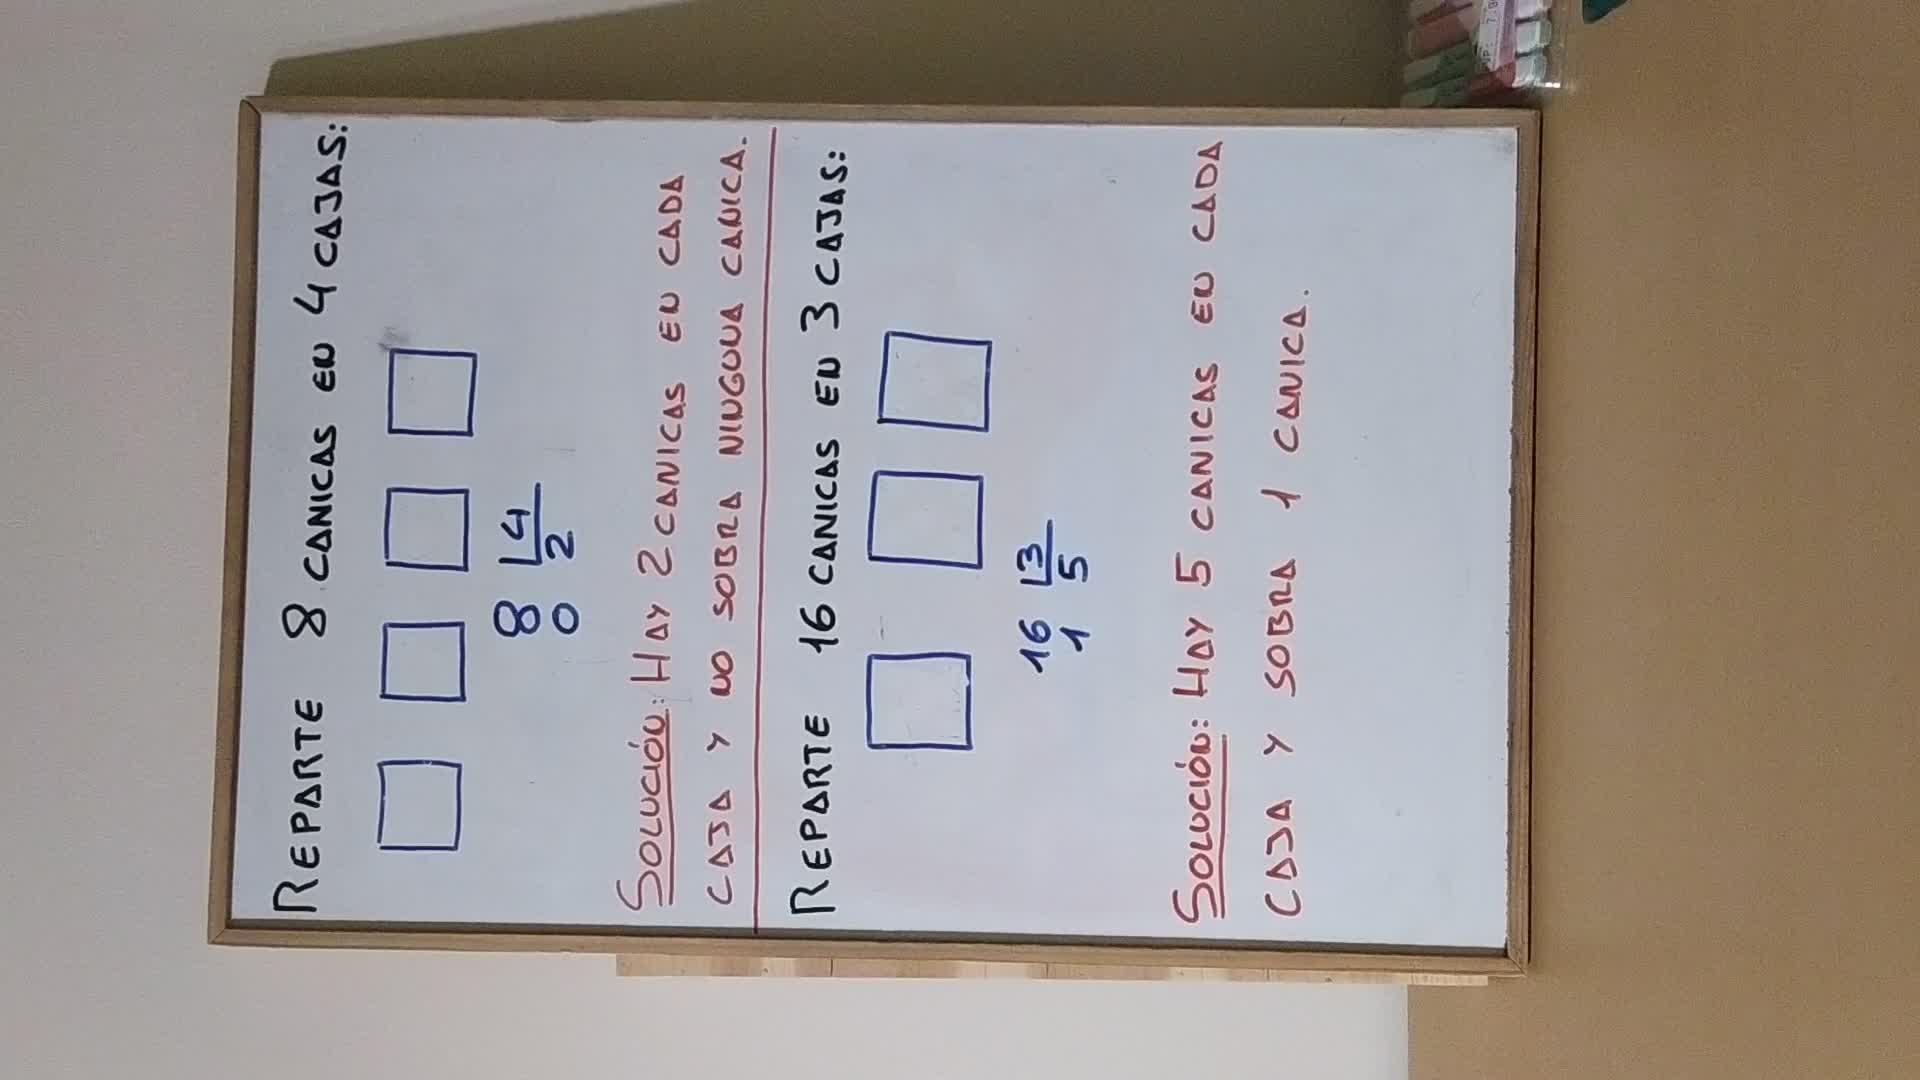 REPARTE 8 CANICAS EN 4 CAJAS:
8 4
0 2
SOLUCIÓN: HAY 2 CANICAS EN CADA
CAJA Y NO SOBRA NINGUNA CANICA.
REPARTE 16 CANICAS EN 3 CAJAS:
16 3
1 5
SOLUCIÓN: HAY 5 CANICAS EN CADA
CAJA Y SOBRA 1 CANICA.